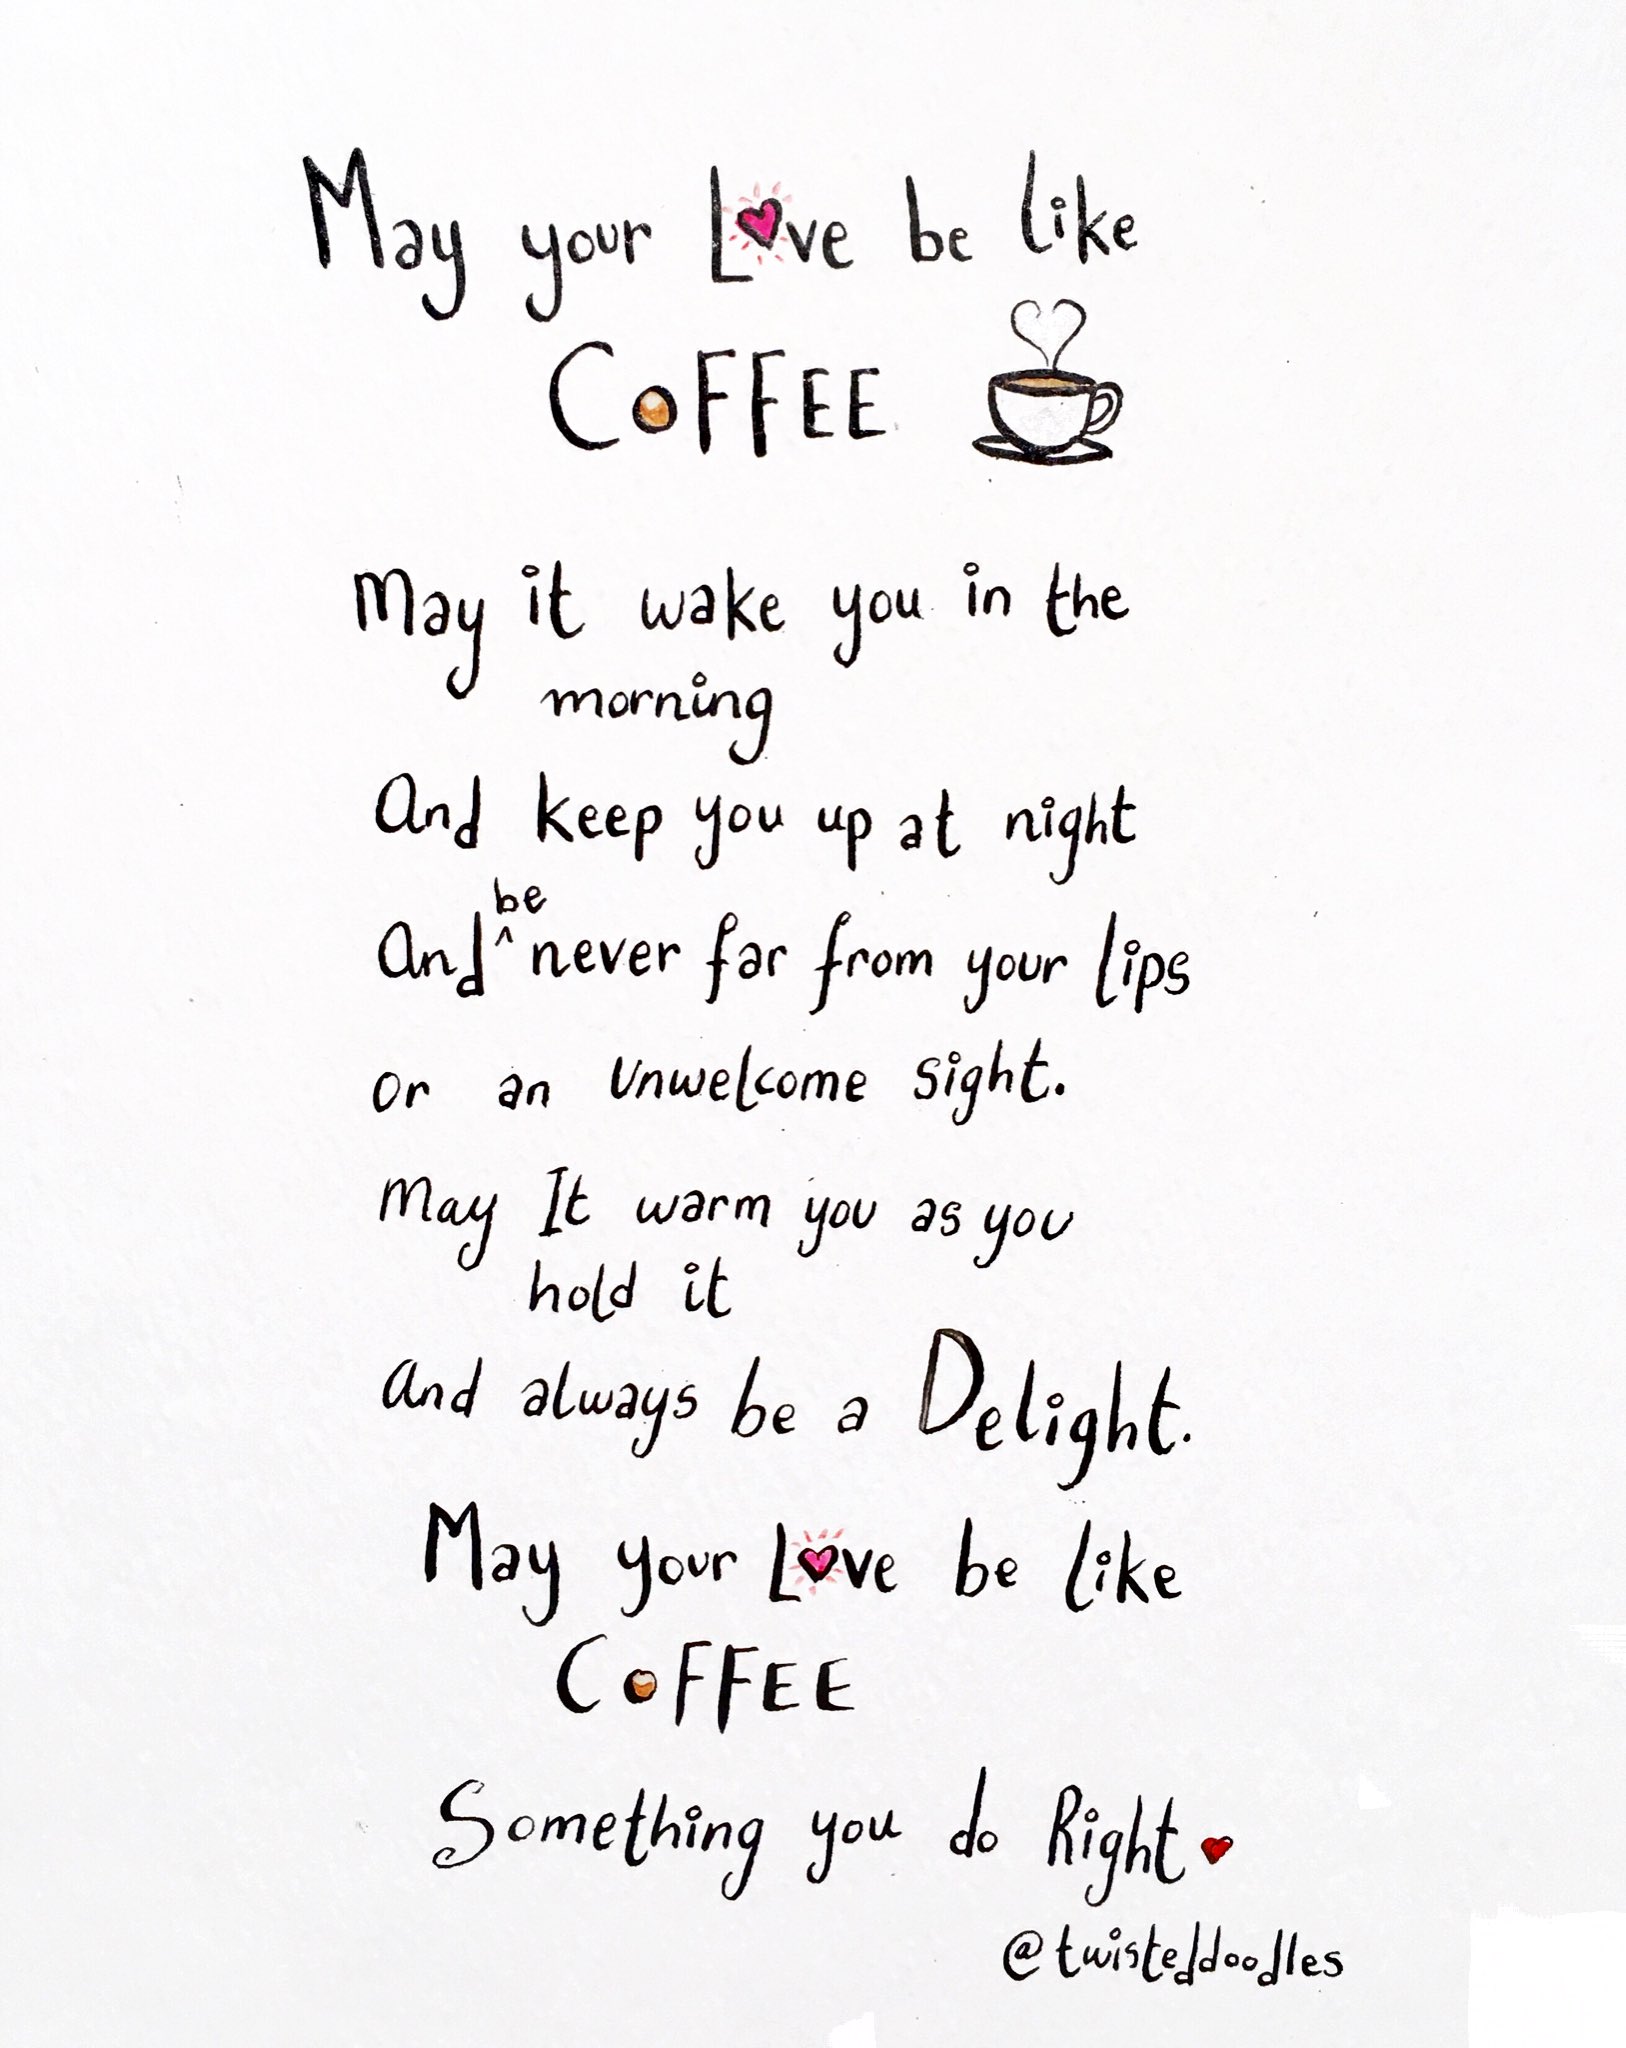 May your Love be like
COFFEE
May it wake you in the
morning
And keep you up at night
And be never far from your lips
or an unwelcome sight.
May It warm you as you
hold it
And always be a Delight.
May your Love be like
COFFEE
Something you do Right
@twisteddoodles